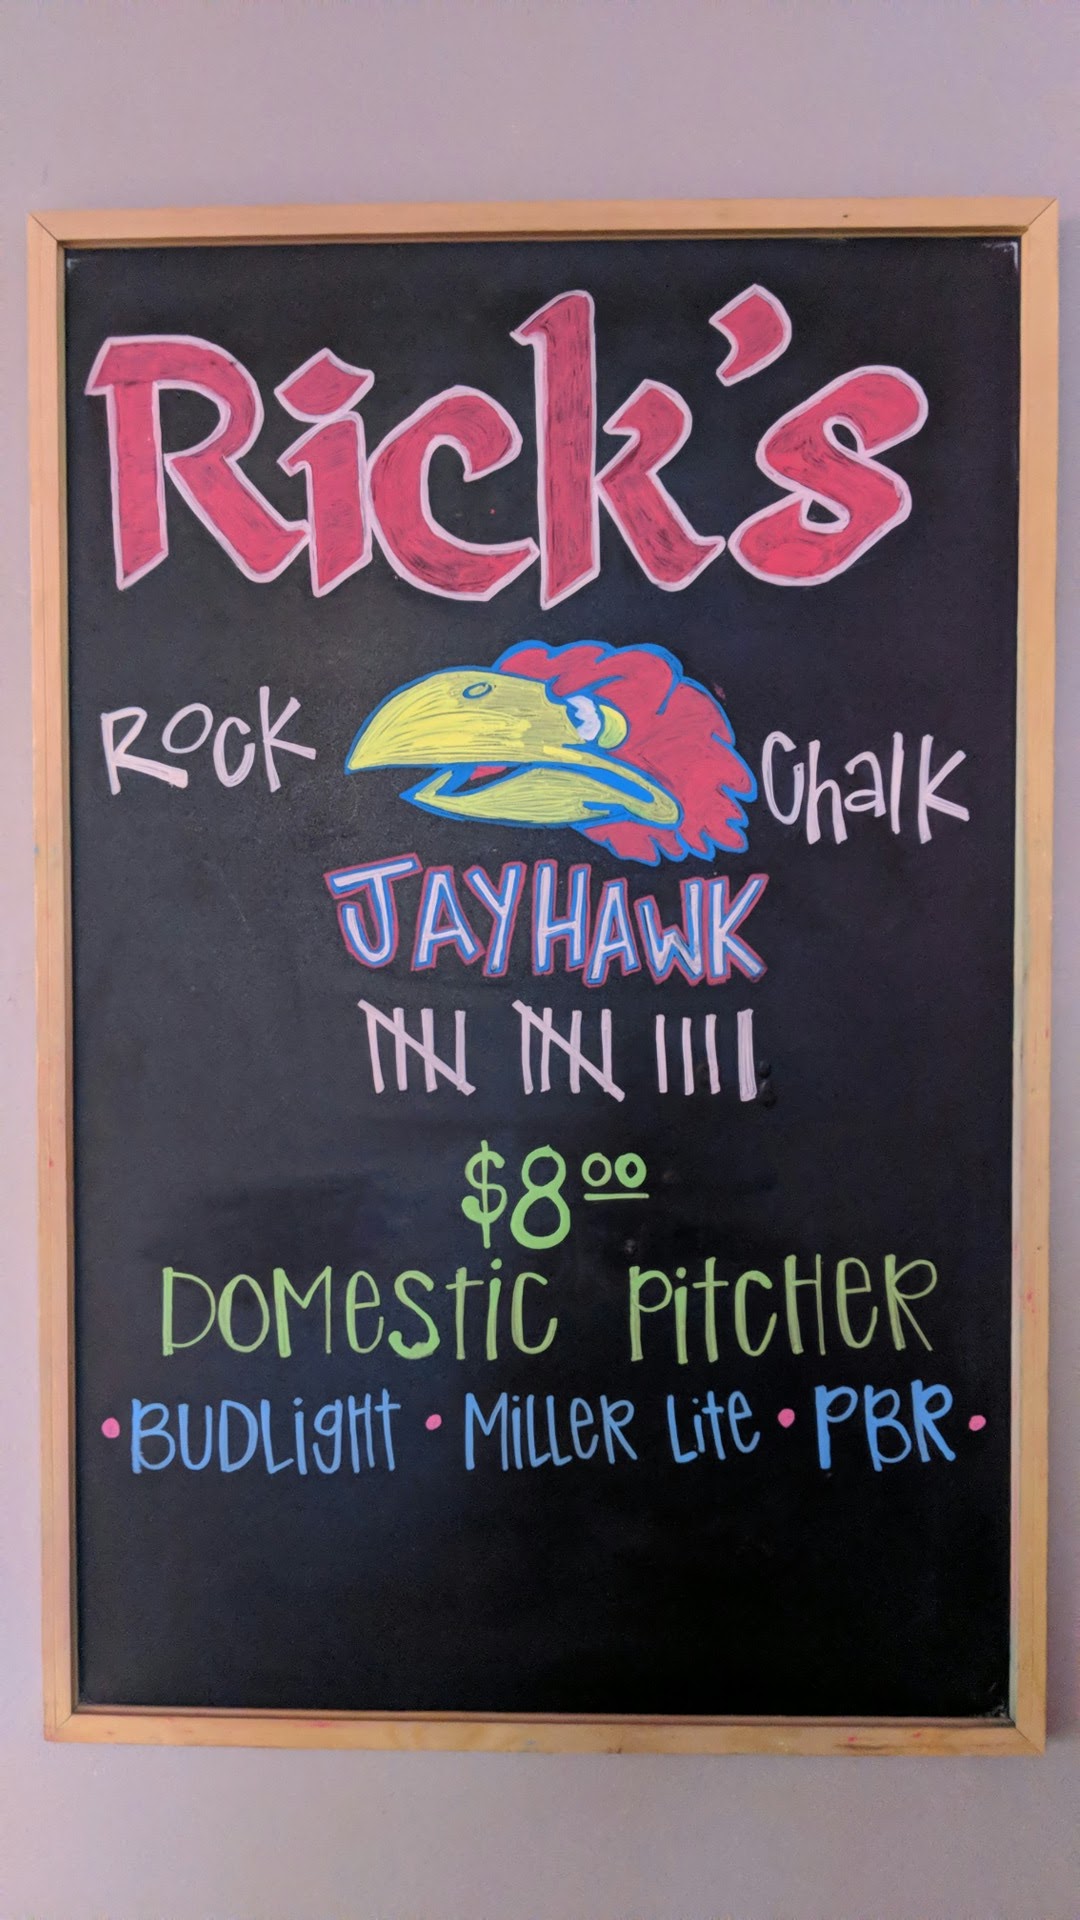 Rick's
Rock Chalk
JAYHAWK
$8.00
DOMestic PitCHeR
• BUDLigHt • MiLLeR Lite • PBR •